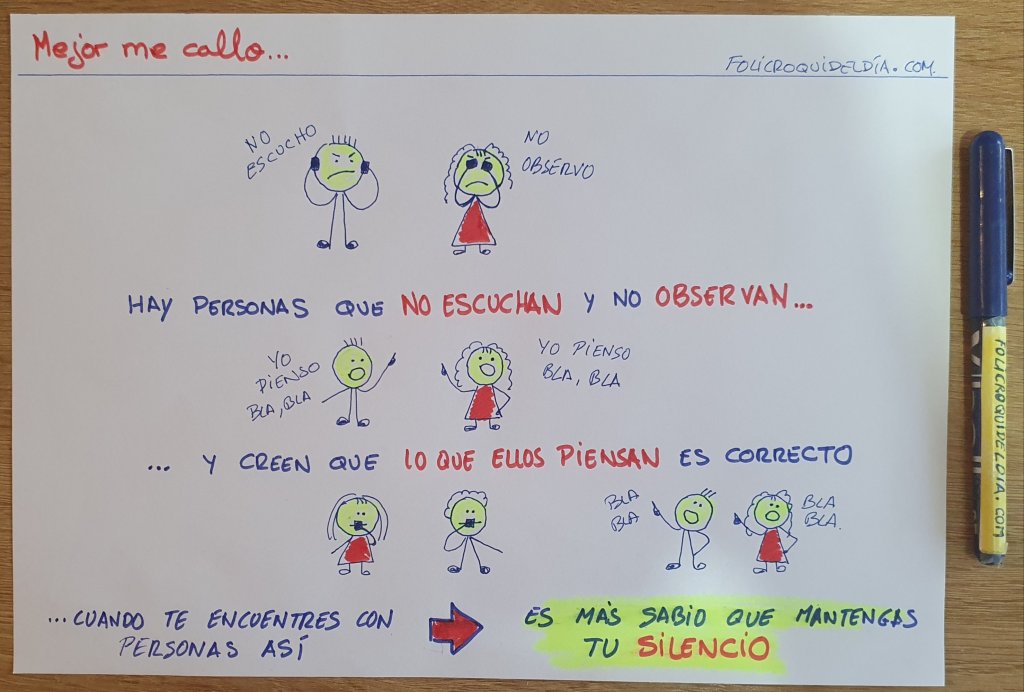 Mejor me callo...
FOLICROQUIDELDÍA.COM
NO
ESCUCHO
NO
OBSERVO
HAY PERSONAS QUE NO ESCUCHAN Y NO OBSERVAN...
YO
PIENSO
BLA, BLA
YO PIENSO
BLA, BLA
... Y CREEN QUE LO QUE ELLOS PIENSAN ES CORRECTO
BLA
BLA
BLA
BLA.
...CUANDO TE ENCUENTRES CON
PERSONAS ASÍ
ES MÁS SABIO QUE MANTENGAS
TU SILENCIO
FOLICROQUIDELDIA.COM